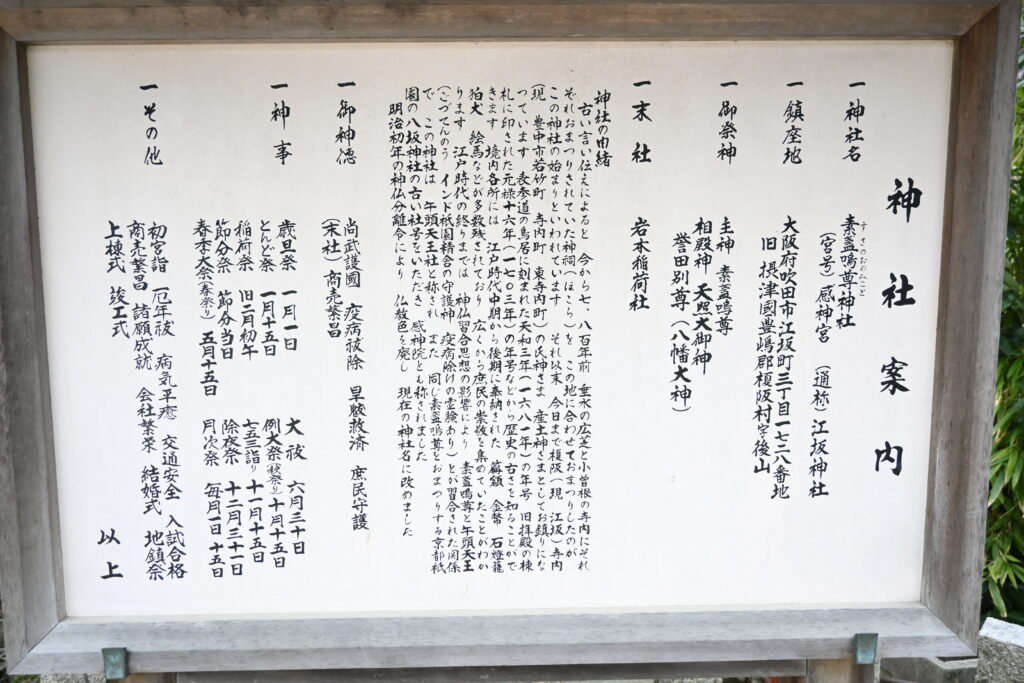 神社案内
一 神社名
すさのおのみこと
素盞嗚尊神社
(宮号)感神宮 (通称)江坂神社
一 鎮座地
大阪府吹田市江坂町三丁目一七二八番地
旧 摂津國豊嶋郡榎阪村字後山
一 御祭神
主神 素盞嗚尊
相殿神 天照大御神
誉田別尊(八幡大神)
一 末社
岩本稲荷社
神社の由緒
古い言い伝えによると 今から七、八百年前 垂水の広芝と小曽根の寺内にそれ
ぞれおまつりされていた神祠(ほこら)を この地に合わせておまつりしたのが
この神社の始まりといわれています それ以来 今日まで榎阪(現 江坂)寺内
(現 豊中市若竹町 寺内町 東寺内町)の氏神さま 産土神さまとしてお鎮りにな
っています 表参道の鳥居に刻まれた天和三年(一六八一年)の年号 旧拝殿の棟
札に印された元禄十六年(一七〇三年)の年号などから歴史の古さを知ることがで
きます 境内各所には 江戸時代中期から後期に奉納された 蘇鉄 金幣 石燈籠
狛犬 絵馬などが多数残されており 広くから庶民の崇敬を集めていたことがわか
ります 江戸時代の終りまでは 神仏習合思想の影響により 素盞嗚尊と牛頭天王
(ごづてんのう インド祇園精舎の守護神 疫病除けの霊験あり)とが習合された関係
で この神社は 牛頭天王社と称され また 同じ素盞嗚尊をおまつりする京都祇
園の八坂神社の古い社号をいただき 感神院とも称されました
明治初年の神仏分離令により 仏教色を廃し 現在の神社名に改めました
一 御神徳
尚武護國 疫病祓除 旱魃救済 庶民守護
(末社)商売繁昌
一 神事
歳旦祭 一月一日
とんど祭 一月十五日
稲荷祭 旧二月初午
節分祭 節分当日
春季大祭(春祭り) 五月十五日
大祓 六月三十日
例大祭(秋祭り)十月十五日
七五三詣り 十一月十五日
除夜祭 十二月三十一日
月次祭 毎月一日 十五日
一 その他
初宮詣 厄年祓 病気平癒 交通安全 入試合格
商売繁昌 諸願成就 会社繁栄 結婚式 地鎮祭
上棟式 竣工式
以上